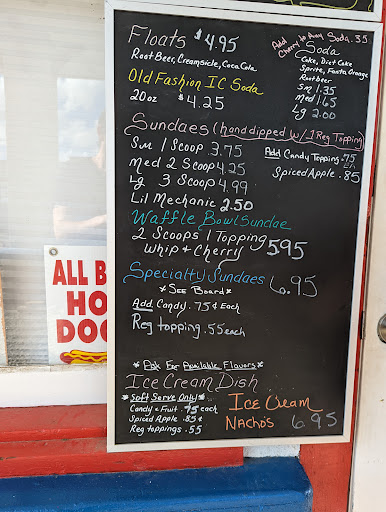 Floats $4.95
Root Beer, Creamsicle, Coca Cola
Old Fashion IC Soda
20oz $4.25
Add Cherry to Any Soda .35
Soda
Coke, Diet Coke
Sprite, Fanta Orange
Rootbeer
Sm 1.35
Med 1.65
Lg 2.00
Sundaes (hand dipped w/ 1 Reg Topping)
Sm 1 Scoop 3.75
Med 2 Scoop 4.25
Lg 3 Scoop 4.99
Lil Mechanic 2.50
Add Candy Topping .75 EA
Spiced Apple .85
Waffle Bowl Sundae
2 Scoops 1 Topping
Whip + Cherry 5.95
Specialty Sundaes 6.95
*See Board*
Add Candy .75¢ Each
Reg topping .55 each
*Ask For Available Flavors*
Ice Cream Dish
*Soft Serve Only*
Candy & Fruit .75 each
Spiced Apple .85¢
Reg toppings .55
Ice Cream
Nachos 6.95
ALL B
HO
DO